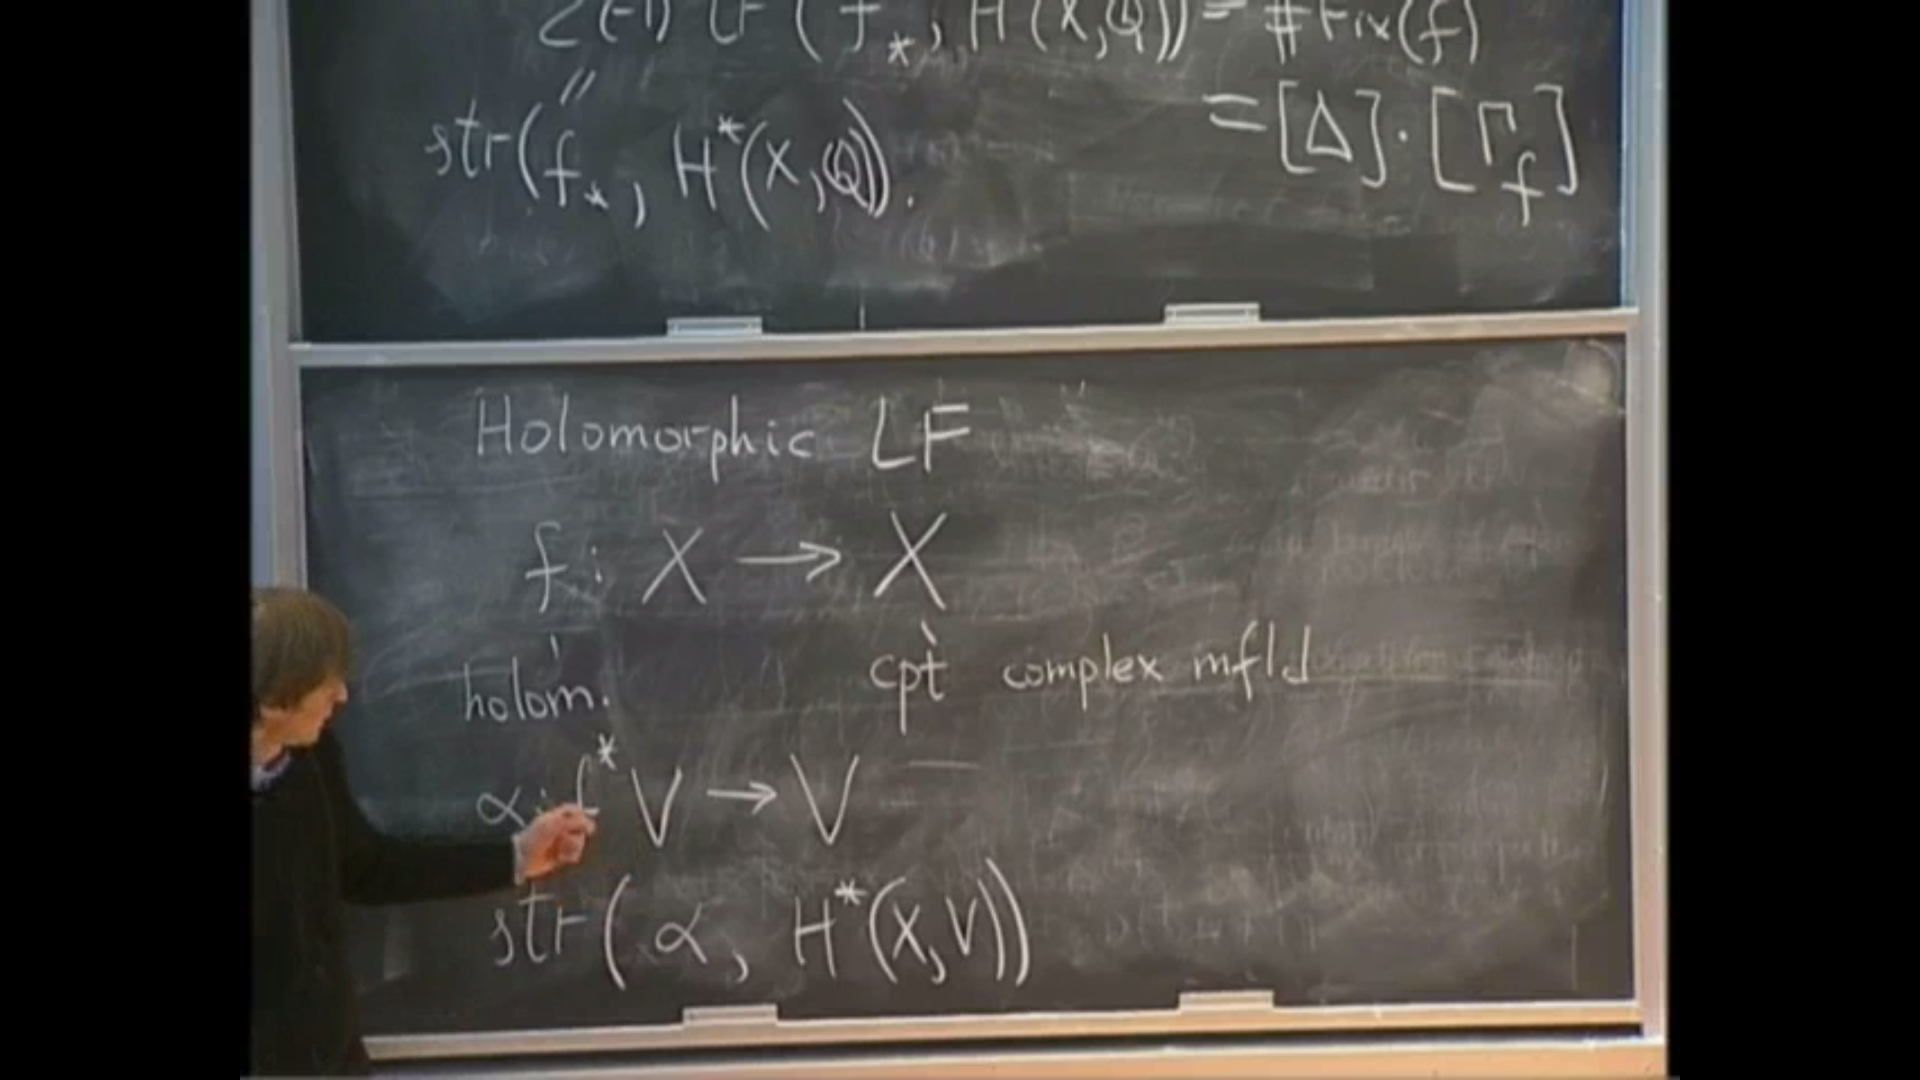 Σ(-1) tr(f_*, H(X,Q)) = #Fix(f)
〃
str(f_*, H^*(X,Q)).
= [Δ]·[Γ_f]
Holomorphic LF
f: X → X
holom.
cpt complex mfld
α: f^* V → V
str(α, H^*(X,V))